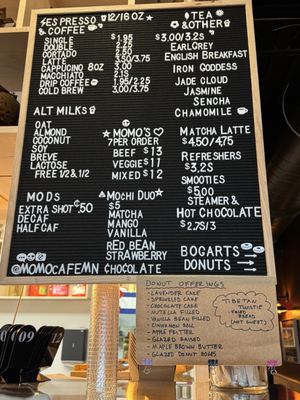 ESPRESSO & COFFEE 12/16 OZ
SINGLE $1.95
DOUBLE 2.25
CORTADO 2.50
LATTE 3.50/3.75
CAPPUCINO 8OZ 3.00
MACCHIATO 2.75
DRIP COFFEE 1.95/2.25
COLD BREW 3.50/3.75
ALT MILKS
OAT
ALMOND
COCONUT
SOY
BREVE
LACTOSE
FREE 1/2 & 1/2
MODS
EXTRA SHOT ¢.50
DECAF
HALF CAF
@MOMOCAFEMN
MOMO'S
7 PER ORDER
BEEF $13
VEGGIE $11
MIXED $12
MOCHI DUO
$5
MATCHA
MANGO
VANILLA
RED BEAN
STRAWBERRY
CHOCOLATE
TEA & OTHER
$3.00/3.25
EARL GREY
ENGLISH BREAKFAST
IRON GODDESS
JADE CLOUD
JASMINE
SENCHA
CHAMOMILE
MATCHA LATTE
$4.50/4.75
REFRESHERS
$3.25
SMOOTIES
$5.00
STEAMER &
HOT CHOCOLATE
$2.75/3
BOGARTS
DONUTS
DONUT OFFERINGS
- LAVENDER CAKE
- SPRINKLED CAKE
- CHOCOLATE CAKE
- NUTELLA FILLED
- VANILLA BEAN FILLED
- CINNAMON ROLL
- APPLE FRITTER
- GLAZED RAISED
- MAPLE BROWN BUTTER
- GLAZED DONUT HOLES
TIBETAN
TWISTIE
FRIED
BREAD
(NOT SWEET)